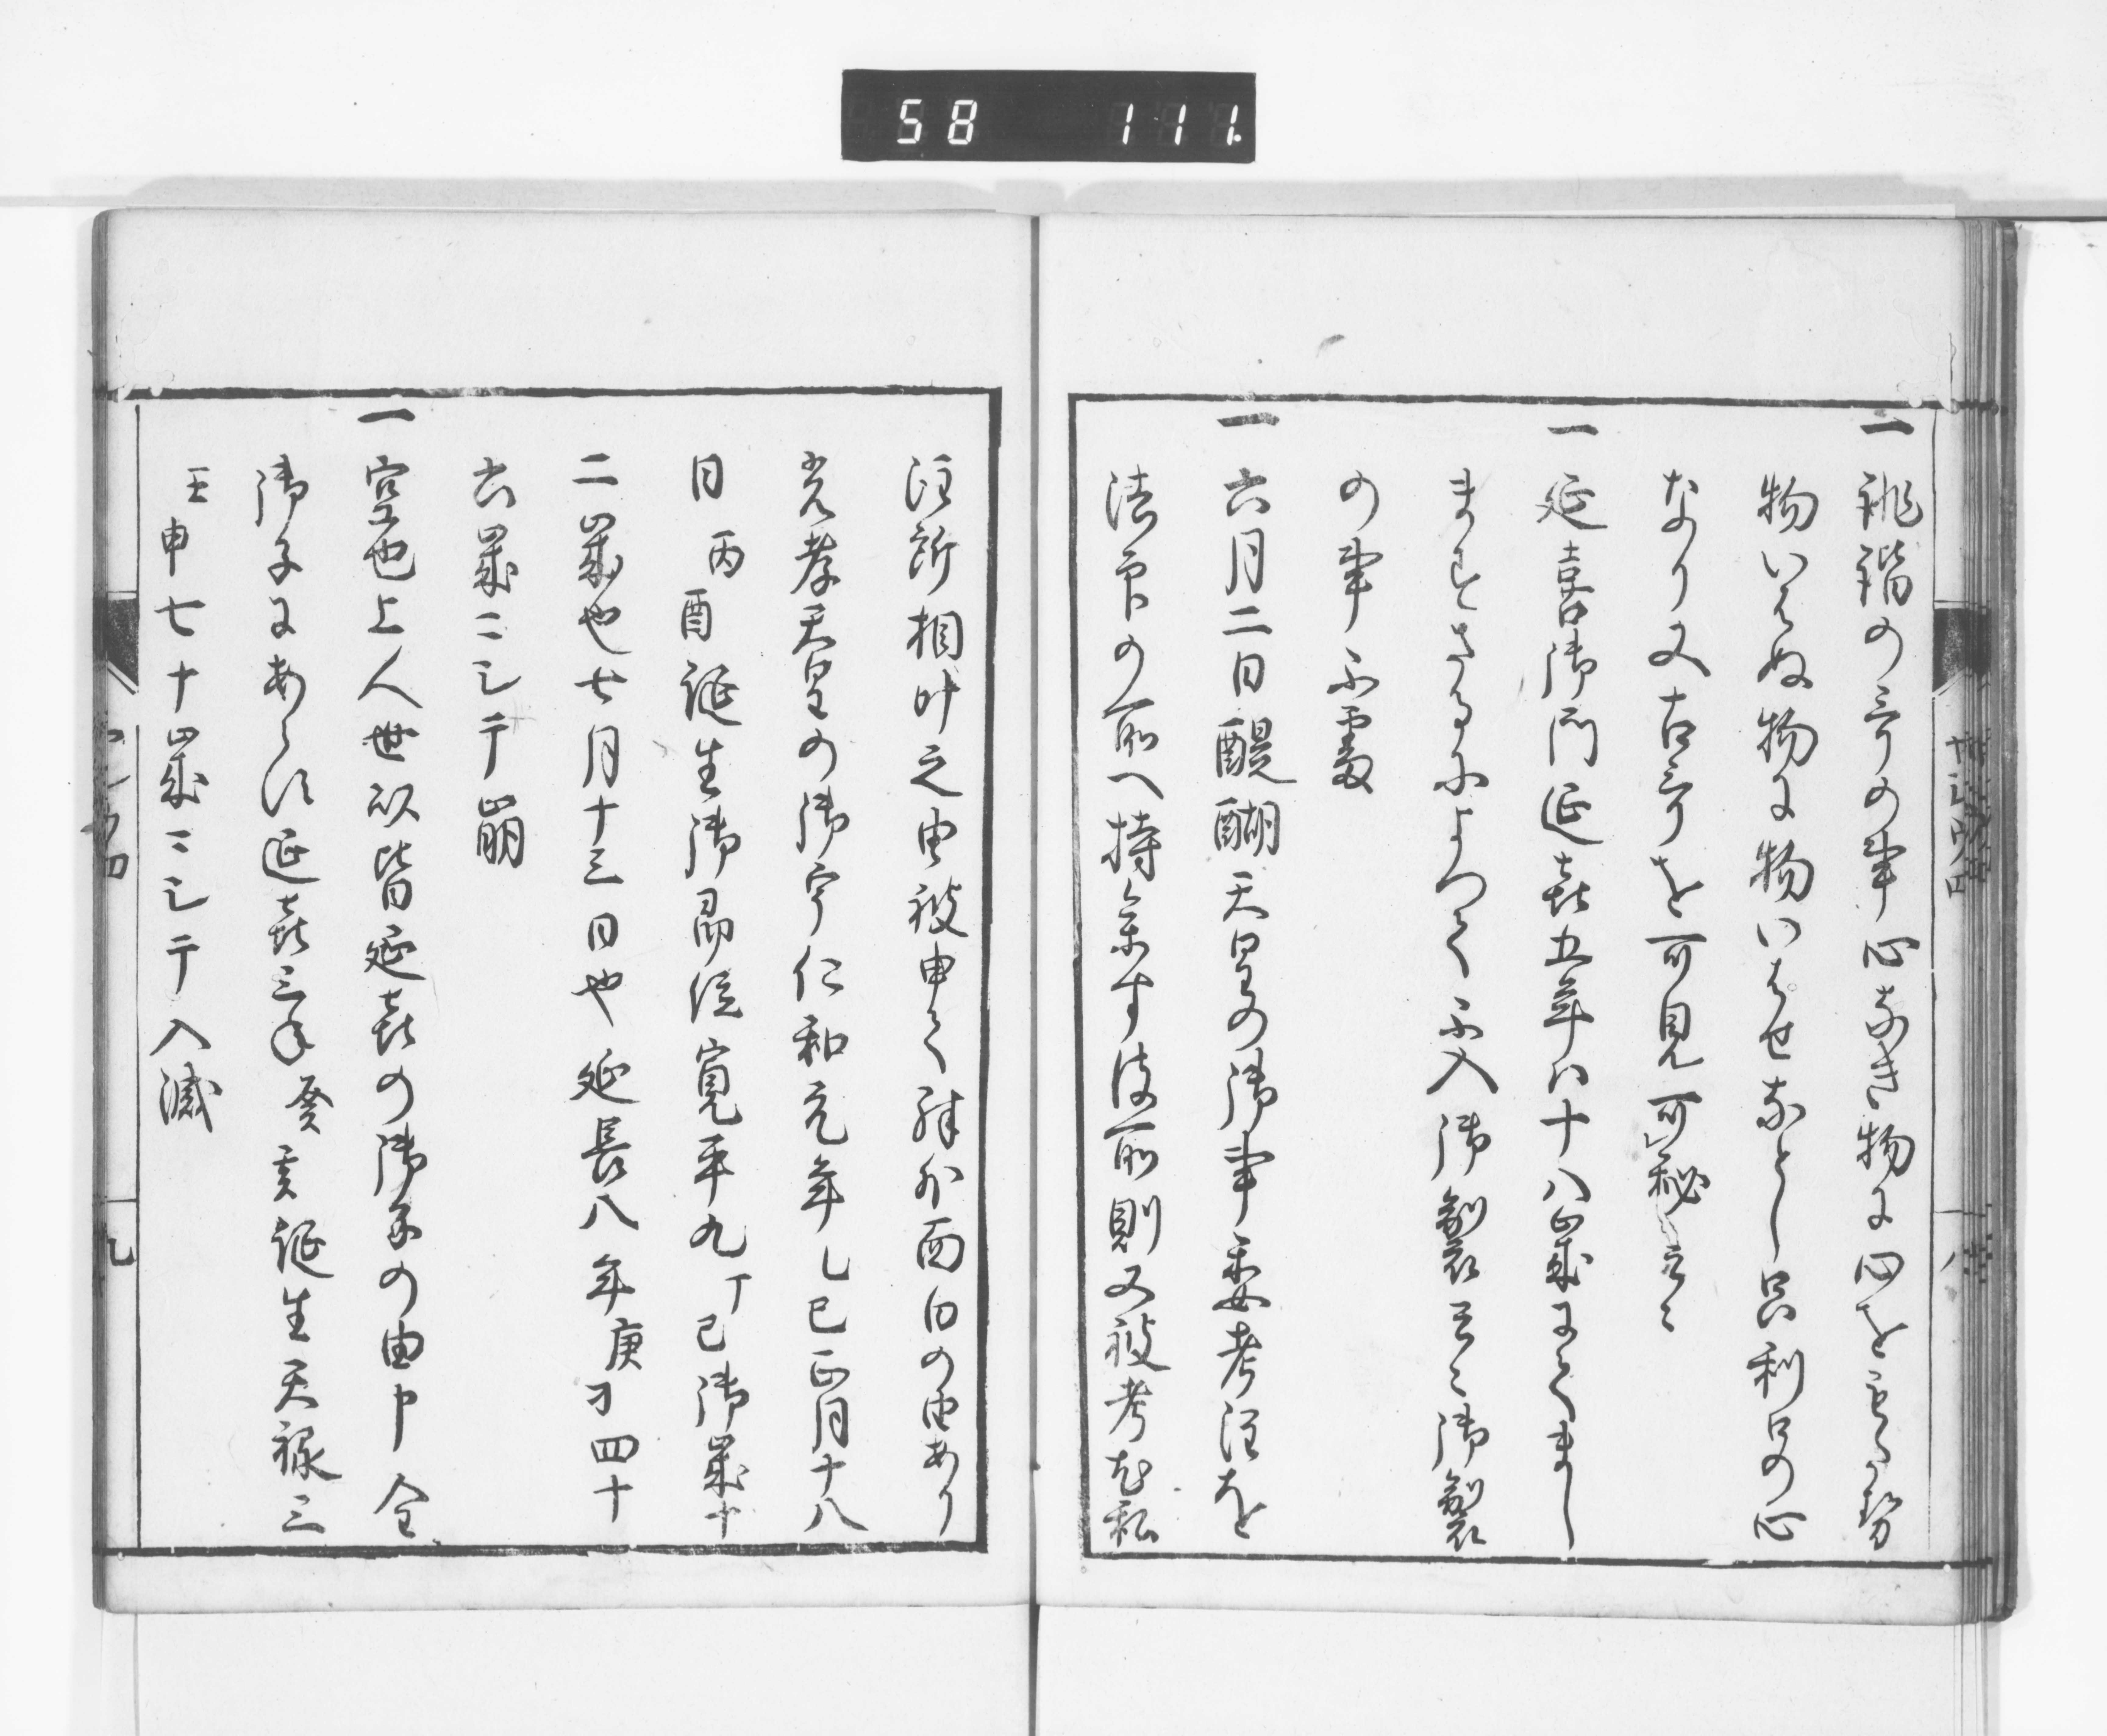 58 111
一 誹諧の哥の事心なき物に心をもたせ
物いはぬ物に物いはせなとし口利口の心
なり又古哥を可見可秘云々
一 延喜御門延喜五年ハ十八歳にてまし
ますさるによつて不入御製云々御製
の事不審
一 六月二日醍醐天皇の御事委考注を
法印の前へ持参す彼前則又被考尤私
注所相叶之由被申て殊外面白の由あり
光孝天皇の御宇仁和元年乙巳正月十八
日丙酉誕生御即位寛平九丁巳御歳十
二歳也七月十三日也延長八年庚刁四十
六歳ニシテ崩
一 空也上人世以皆延喜の御子の由申全
御子にあらす延喜三年癸亥誕生天禄三
壬申七十歳ニシテ入滅
九